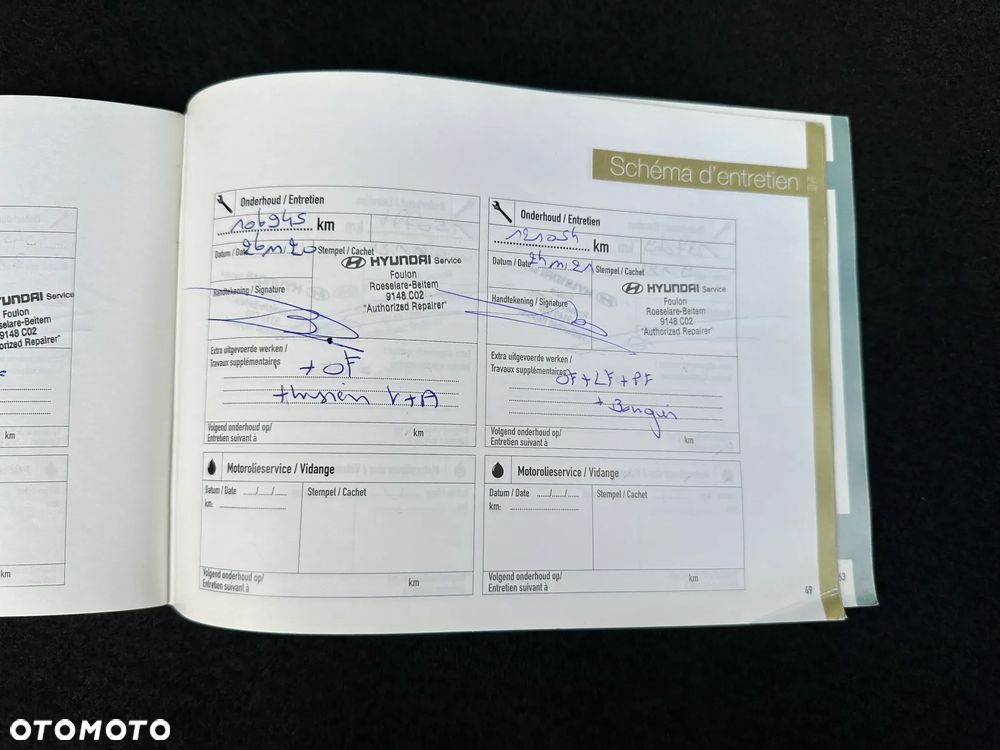 Schéma d'entretien
Onderhoud / Entretien
106945 km
Datum / Date
Stempel / Cachet
HYUNDAI Service
Foulon
Roeselare-Beitem
9148 C02
"Authorized Repairer"
Handtekening / Signature
Extra uitgevoerde werken /
Travaux supplémentaires
+ OF
V+A
Volgend onderhoud op/
Entretien suivant à
km
Motorolieservice / Vidange
Datum / Date ..../..../....
Stempel / Cachet
km:
Volgend onderhoud op/
Entretien suivant à
km
Onderhoud / Entretien
121054 km
Datum / Date
Stempel / Cachet
HYUNDAI Service
Foulon
Roeselare-Beitem
9148 C02
"Authorized Repairer"
Handtekening / Signature
Extra uitgevoerde werken /
Travaux supplémentaires
OF + LF + PF
Volgend onderhoud op/
Entretien suivant à
km
Motorolieservice / Vidange
Datum / Date ..../..../....
Stempel / Cachet
km:
Volgend onderhoud op/
Entretien suivant à
km
49
63
Service
Foulon
9148 C02
km
km
OTOMOTO